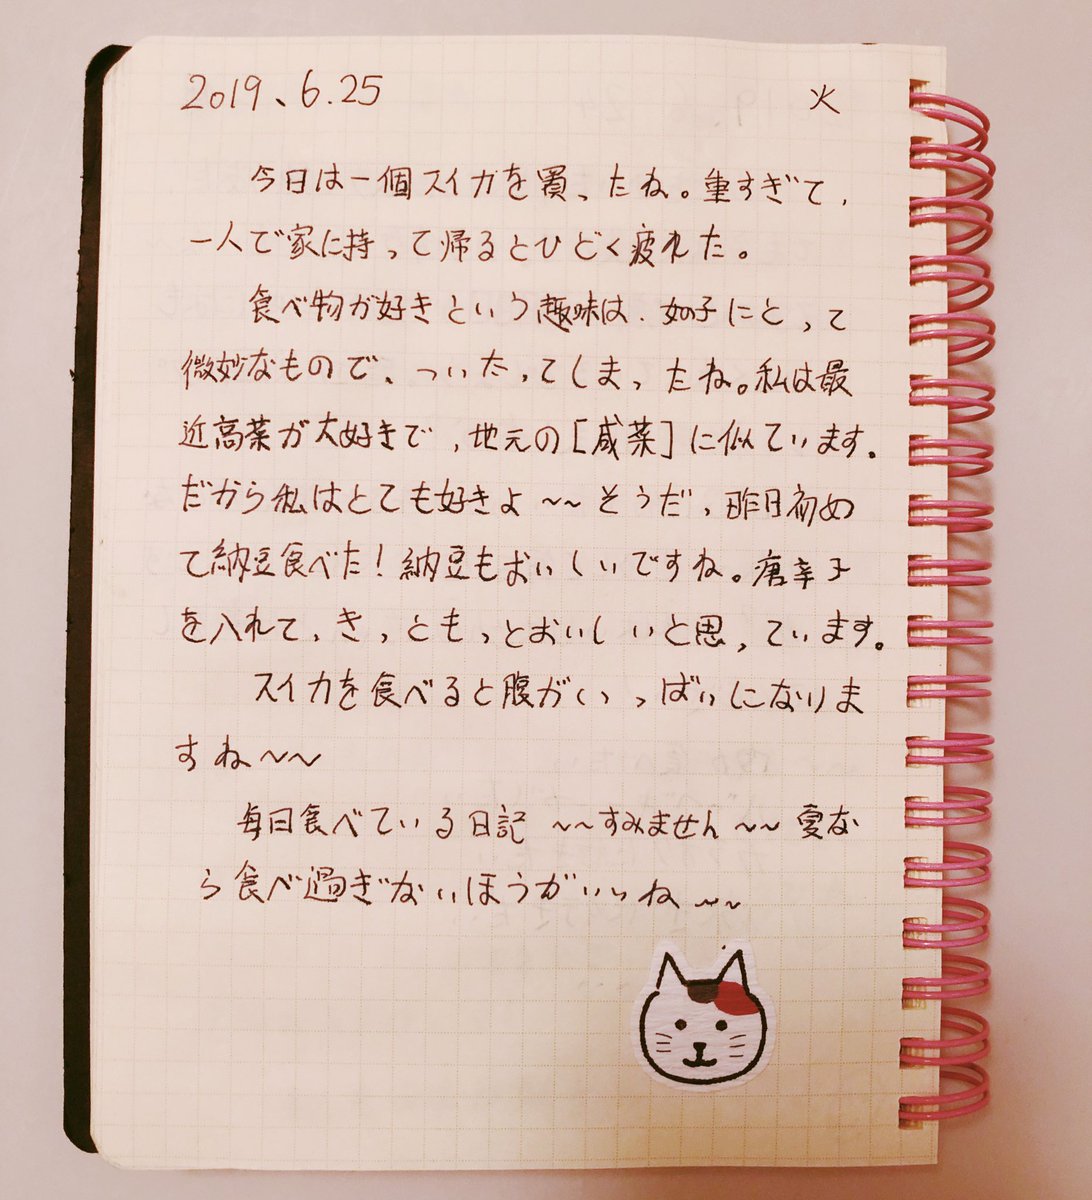 2019、6.25 火
今日は一個スイカを買ったね。重すぎて、
一人で家に持って帰るとひどく疲れた。
食べ物が好きという趣味は、女の子にとって
微妙なもので、ついたってしまったね。私は最
近高菜が大好きで、地元の[咸菜]に似ています。
だから私はとても好きよ～～そうだ、昨日初め
て納豆食べた!納豆もおいしいですね。唐辛子
を入れて、きっともっとおいしいと思っています。
スイカを食べると腹がいっぱいになりま
すね～～
毎日食べている日記～～すみません～～夏な
ら食べ過ぎないほうがいいね～～